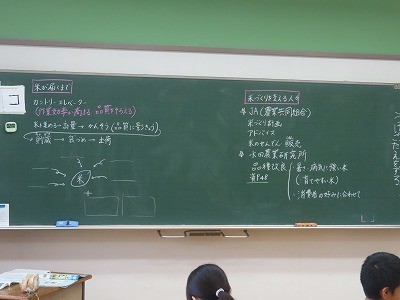 米が届くまで
カントリーエレベーター
(作業効率を高める 品質をそろえる)
米を集める→計量→かんそう(品質に影きょう)
→貯蔵→袋づめ→出荷
米
米づくりを支える人々
JA(農業共同組合)
米づくり計画
アドバイス
米のせんでん 販売
水田農業研究所
品種改良
資P48
暑さ、病気に強い米
(育てやすい米)
・消費者の好みに合わせて